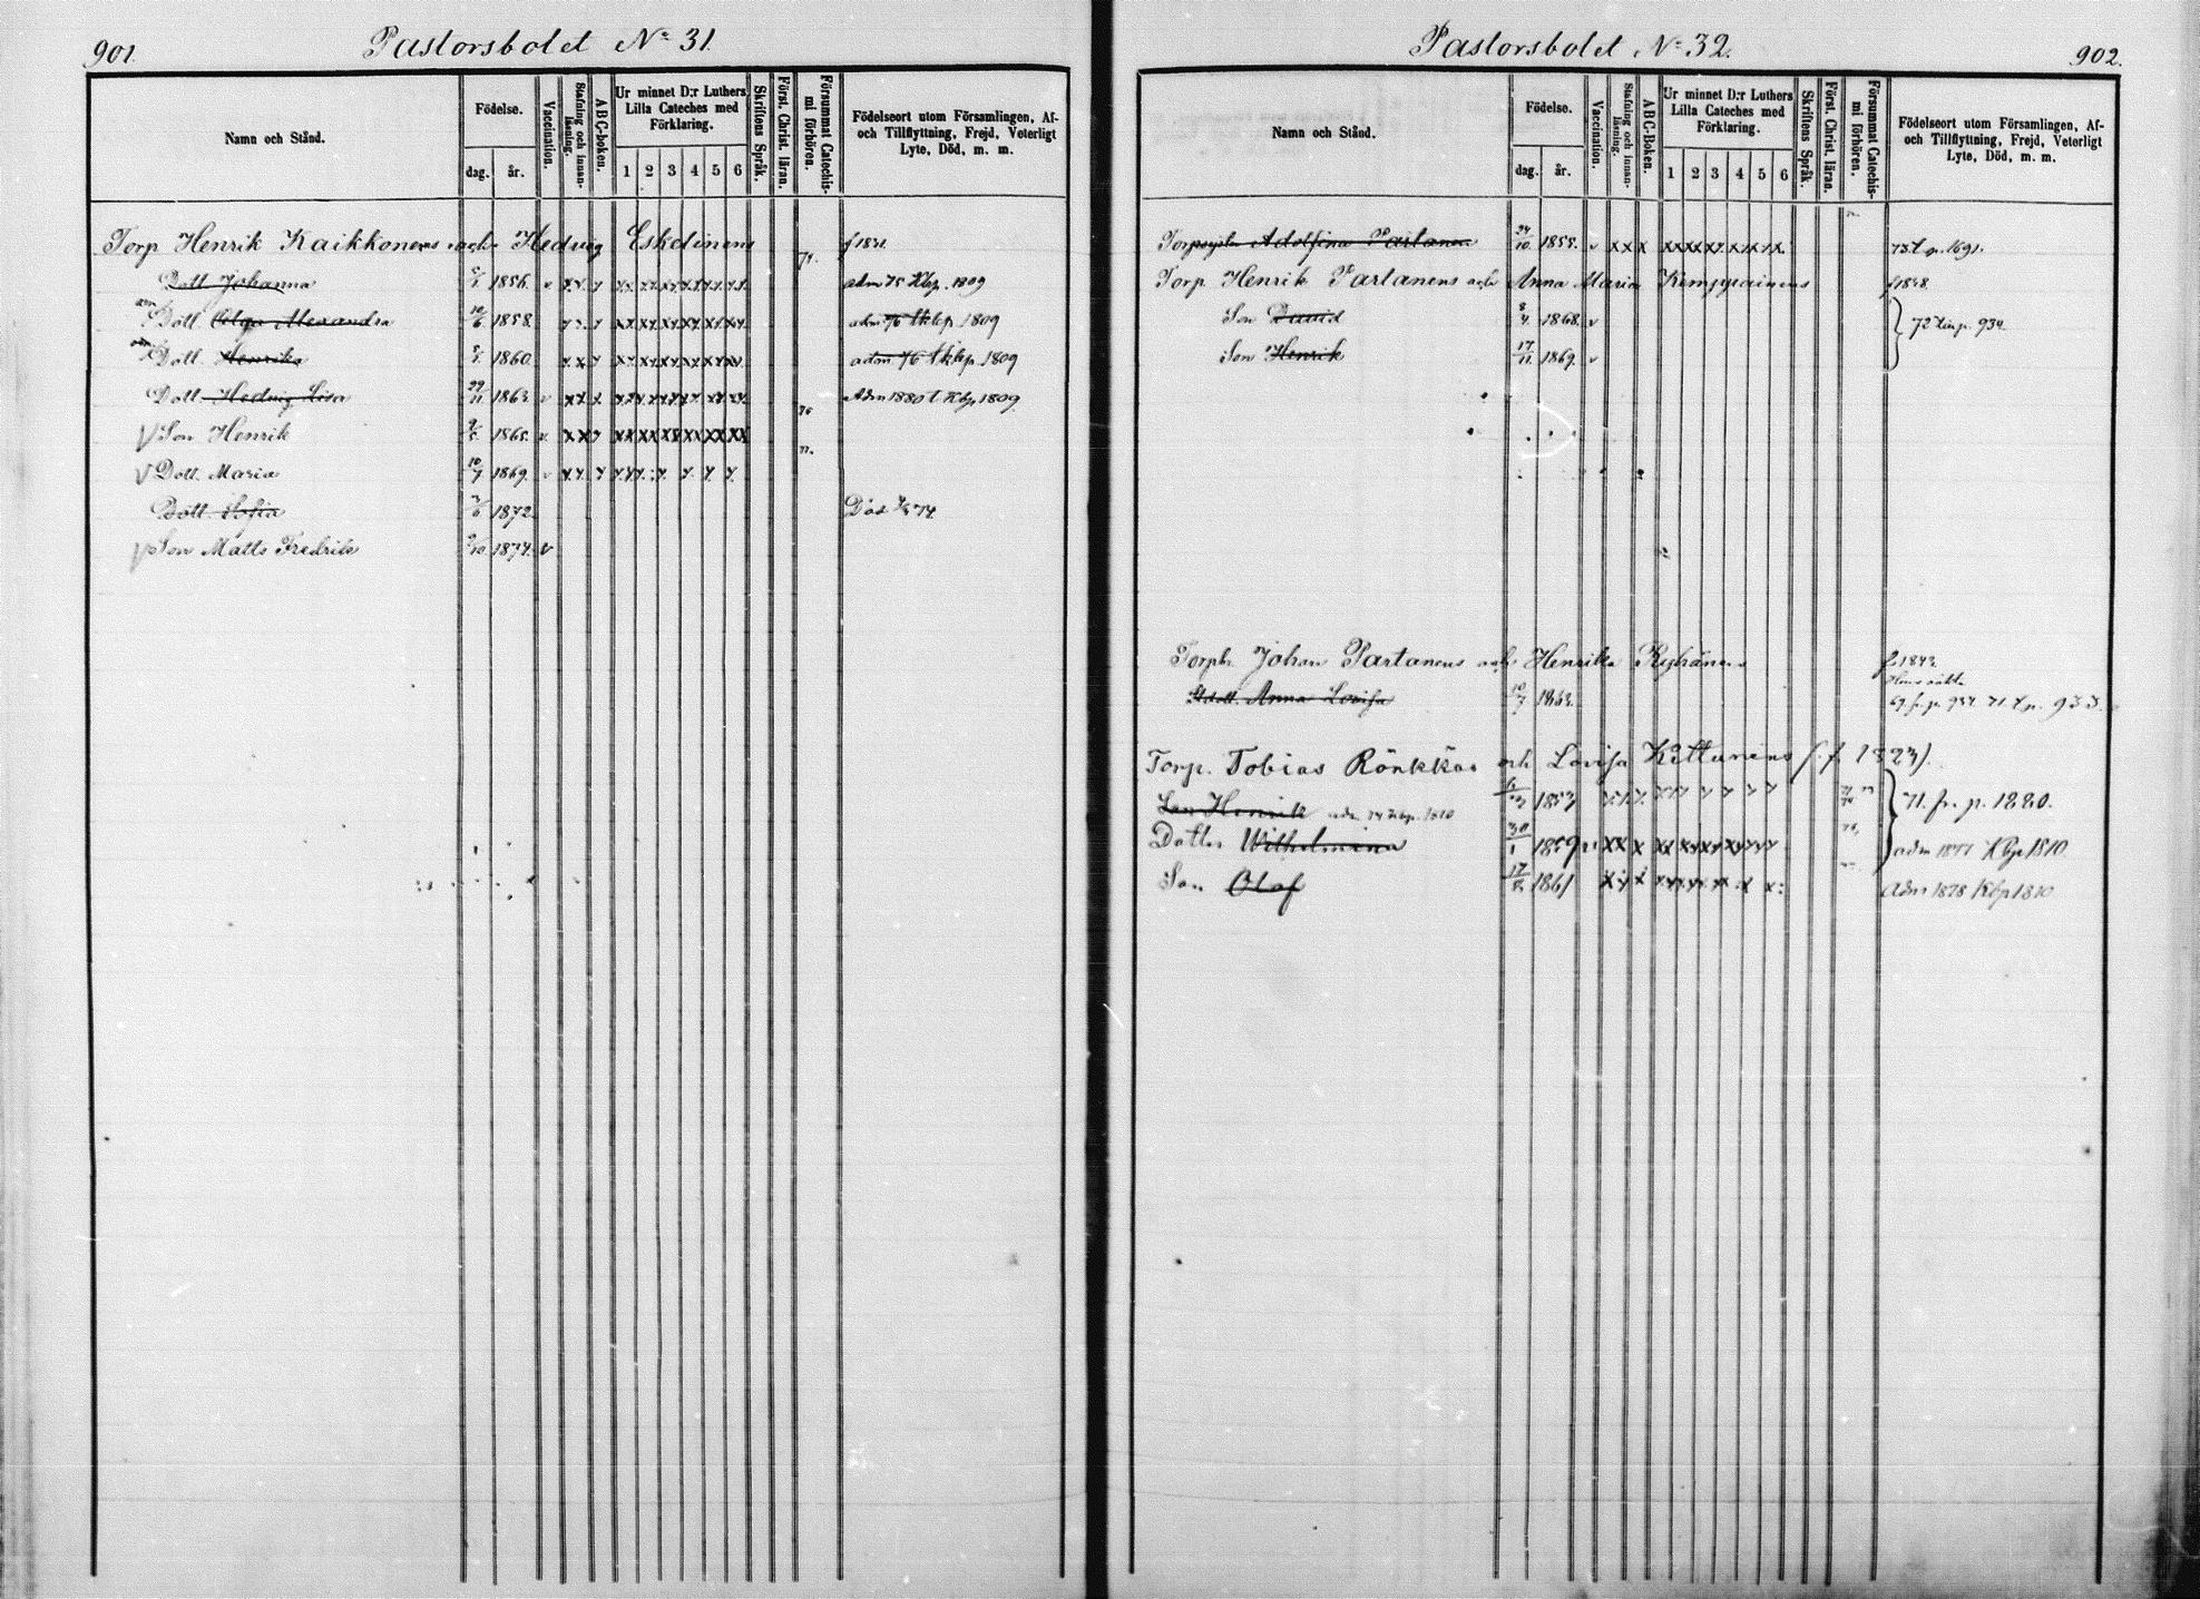 901.
Pastorsbolet No 31.
Namn och Stånd.
Födelse.
dag.
år.
Vaccination.
Stafning och innanläsning.
ABC-boken.
Ur minnet D:r Luthers Lilla Cateches med Förklaring.
1 2 3 4 5 6
Skriftens Språk.
Först. Christ. läran.
Försummat Catechismi förhören.
Födelseort utom Församlingen, Af- och Tillflyttning, Frejd, Veterligt Lyte, Död, m. m.
Torp Henrik Kaikkonens och Hedvig Eskelinens
Dott Johanna 1856. v adm 75 Kbp. 1809
Dött. Olga Alexandra 10/6 1858. adm 76 t kbp 1809
Dott. Henrika 1860. adm 76 t kbp. 1809
Dott. Hedvig Lisa 29/11 1863. v Adm 1880 t Kbp 1809
V Son Henrik 1865. v
V Dott. Maria 10/7 1869. v
Dött. Sofia 1872. Död 74
V Son Matts Fredrik 9/10 1874. v
Pastorsbolet No 32.
902.
Namn och Stånd.
Födelse.
dag.
år.
Vaccination.
Stafning och innanläsning.
ABC-boken.
Ur minnet D:r Luthers Lilla Cateches med Förklaring.
1 2 3 4 5 6
Skriftens Språk.
Först. Christ. läran.
Försummat Catechismi förhören.
Födelseort utom Församlingen, Af- och Tillflyttning, Frejd, Veterligt Lyte, Död, m. m.
Adolfina Partanen 24/10 1855. v 73 t. p. 1691.
Torp Henrik Partanens och Anna Maria Kemppainens f 1848.
Son David 8/4 1868. v 72 t. p. 934
Son Henrik 17/11 1869. v
Johan Partanens och Henrika f. 1842
Anna Lovisa 10/7 1863. 69. fr. p. 934. 71. t. p. 933.
Torp. Tobias Rönkkös och Lovisa Kettunens (f. 1823).
Son Henrik 1853 71. fr. p. 1220.
Dotter Wilhelmina 30/1 1859 adm 1877 Kbp 1810
Son Olaf 17/8 1861 Adm 1878 Kbp 1810